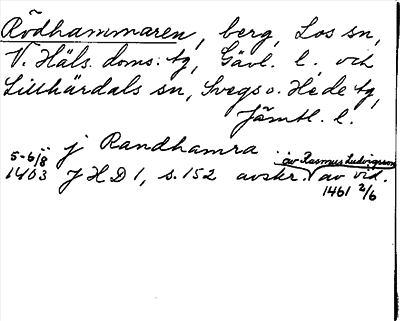 Rödhammaren, berg, Los sn,
V. Häls. doms: tg, Gävl. l. och
Lillhärdals sn, Svegs o. Hede tg,
Jämtl. l.
5-6/8 j Randhamra .. av Rasmus Ludvigsson
1403 JHD 1, s. 152 avskr. av vid.
1461 2/6